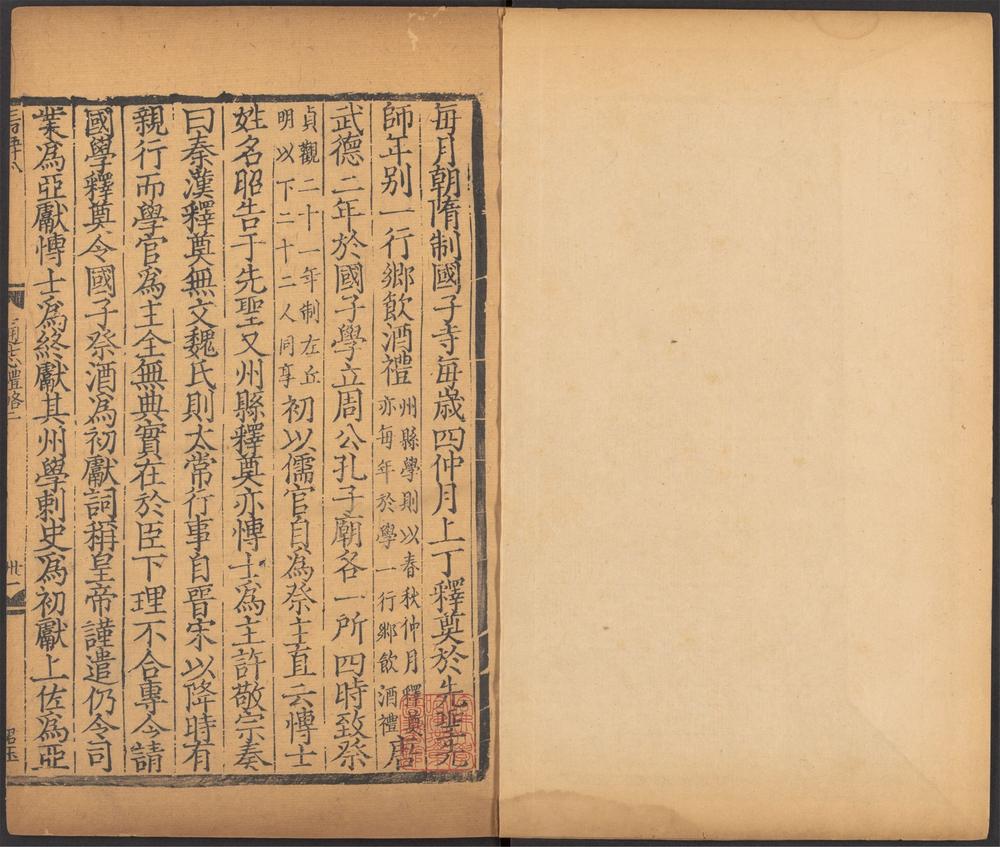 每月朝隋制國子寺每歲四仲月上丁釋奠於先聖先
師年别一行鄉飲酒禮州縣學則以春秋仲月釋奠
亦每年於學一行鄉飲酒禮唐
武德二年於國子學立周公孔子廟各一所四時致祭
貞觀二十一年制左丘
明以下二十二人同享初以儒官自爲祭主直云博士
姓名昭告于先聖又州縣釋奠亦博士爲主許敬宗奏
曰秦漢釋奠無文魏氏則太常行事自晉宋以降時有
親行而學官爲主全無典實在於臣下理不合專今請
國學釋奠令國子祭酒爲初獻詞稱皇帝謹遣仍令司
業爲亞獻博士爲終獻其州學刺史爲初獻上佐爲亞
通志禮略二
卅一